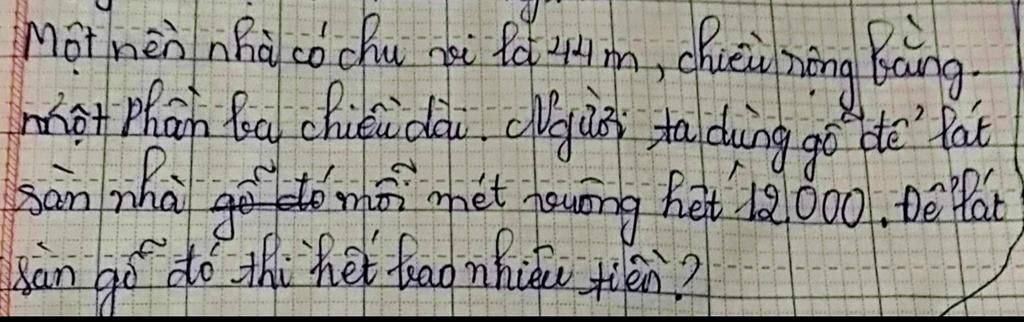 Một nền nhà có chu vi là 44 m, chiều rộng bằng.
một phần ba chiều dài. Người ta dùng gỗ để lát
sàn nhà gỗ đó mỗi mét vuông hết 12 000. Để lát
sàn gỗ đó thì hết bao nhiêu tiền?